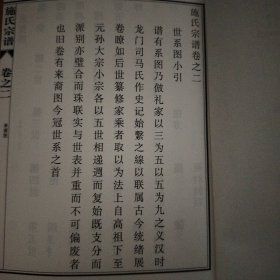 施氏宗谱卷之二
世系图小引
谱有系图乃仿礼家以三为五以五为九之义汉时
龙门司马氏作史记始繫之線以联属古今统绪展
卷瞭如后世纂修家乘者取以为法上自高祖下至
元孙大宗小宗各以五世相递遇而复始既支分而
派别亦璧合而珠联实与世表并重而不可偏废者
也旧卷有来裔图今冠世系之首
施氏宗谱
卷之二